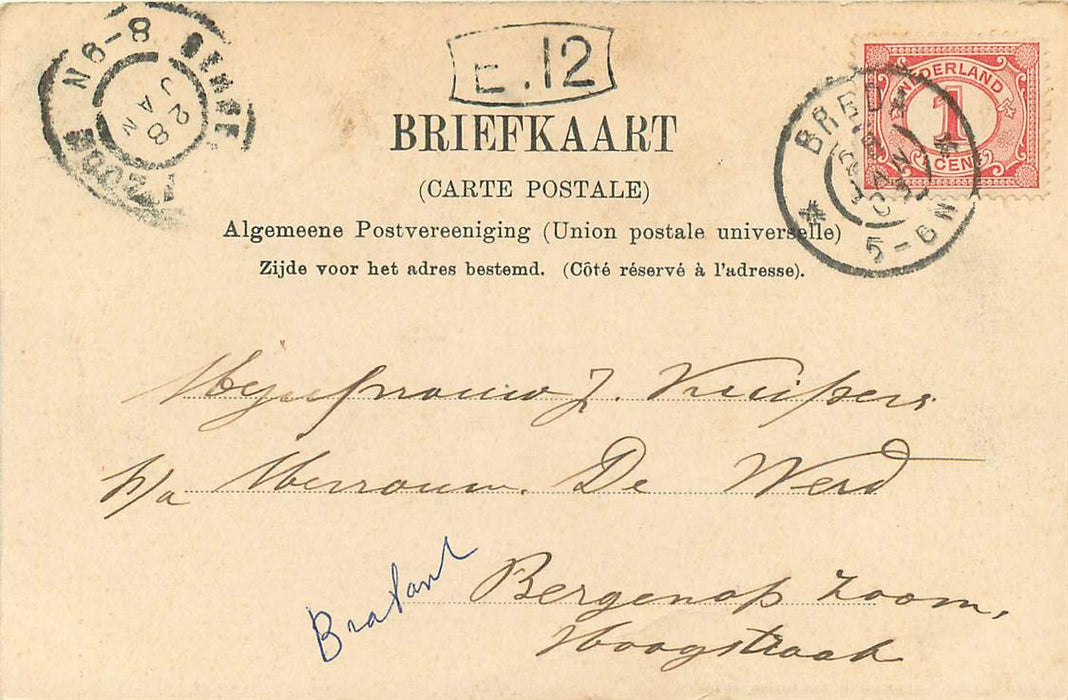 E.12
BRIEFKAART
(CARTE POSTALE)
Algemeene Postvereeniging (Union postale universelle)
Zijde voor het adres bestemd. (Côté réservé à l'adresse).
NEDERLAND
1
CENT
BREDA
28 JAN 03
5-6N
28
JAN
8-9N
Mejufvrouw J. Kuijpers
p/a Mevrouw. De Werd
Bergenop Zoom,
Hoogstraat
Brabant